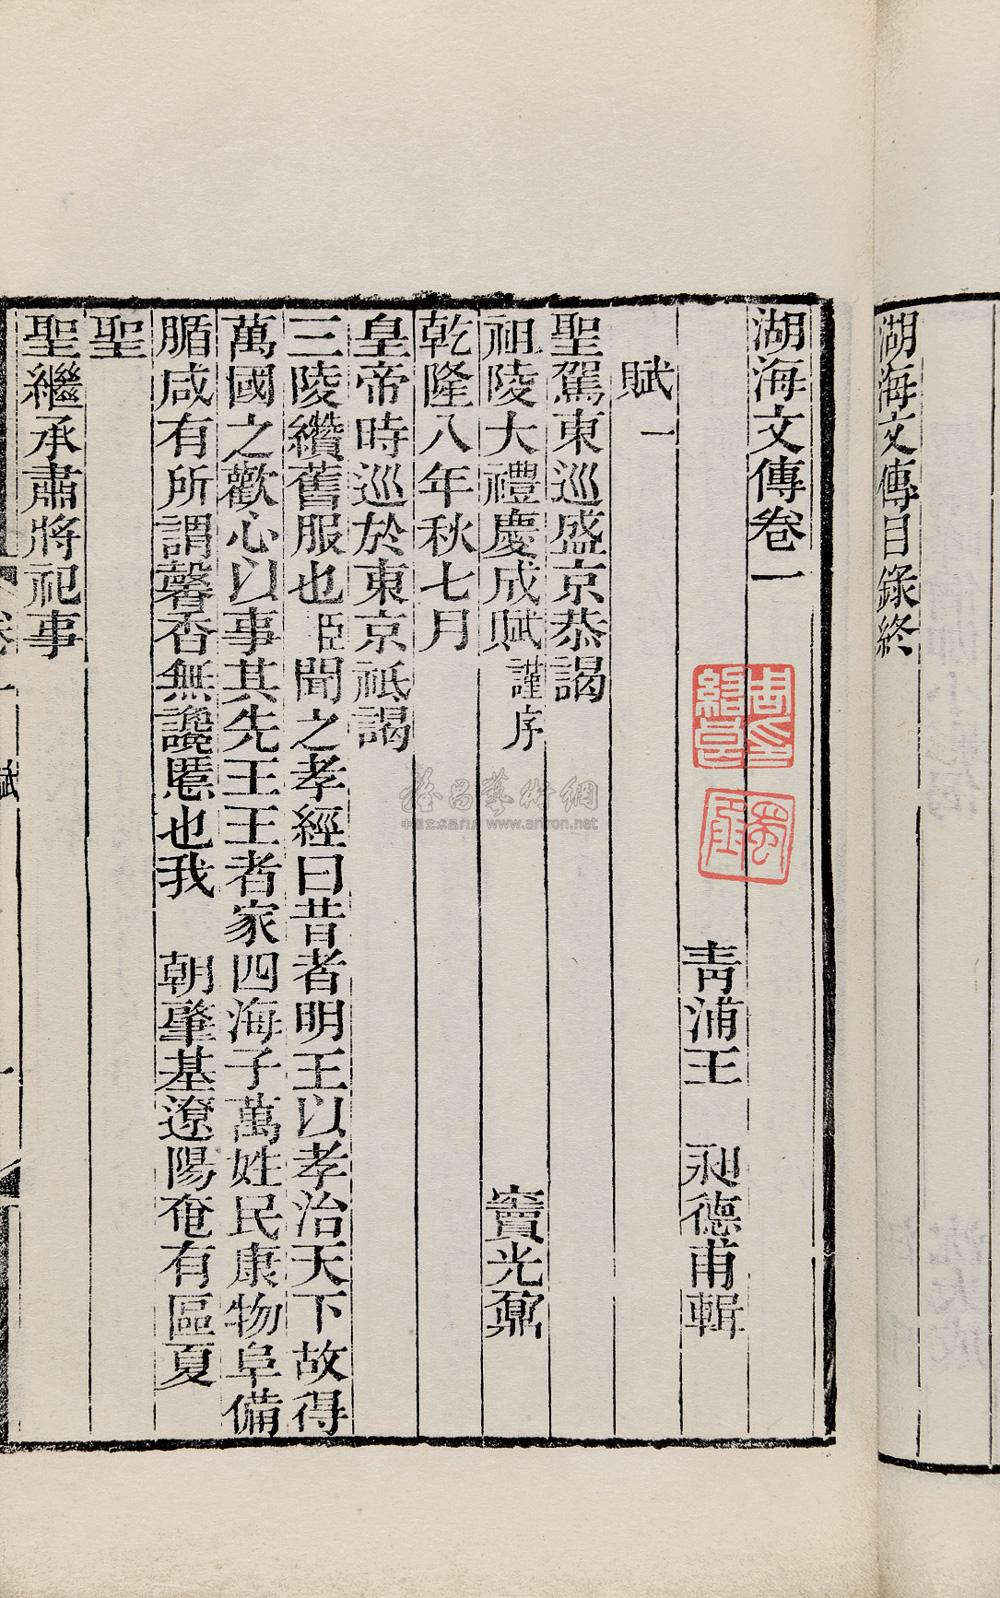 湖海文傳目錄終
湖海文傳卷一
青浦王　昶德甫輯
賦一
聖駕東巡盛京恭謁
祖陵大禮慶成賦謹序　竇光鼐
乾隆八年秋七月
皇帝時巡於東京祗謁
三陵纘舊服也臣聞之孝經曰昔者明王以孝治天下故得
萬國之歡心以事其先王王者家四海子萬姓民康物阜備
腯咸有所謂馨香無讒慝也我　朝肇基遼陽奄有區夏
聖
聖繼承肅將祀事
卷一　賦
一
www.artron.net